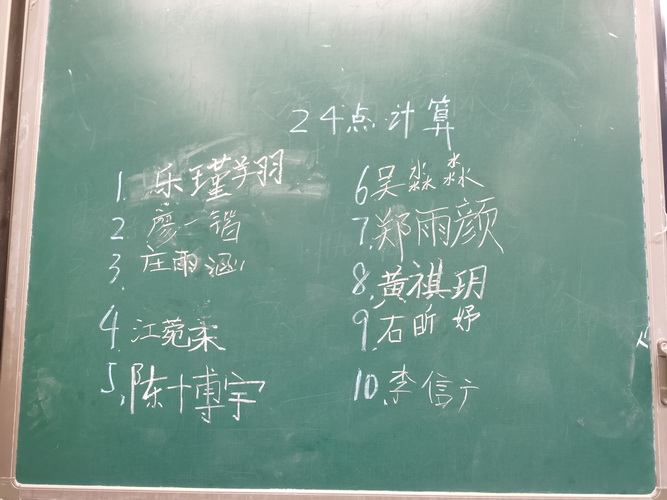 24点计算
1. 乐瑾羽
2 廖一锴
3. 庄雨涵
4. 江菀柔
5. 陈博宇
6 吴淼淼
7. 郑雨颜
8. 黄祺玥
9. 石昕妤
10. 李信